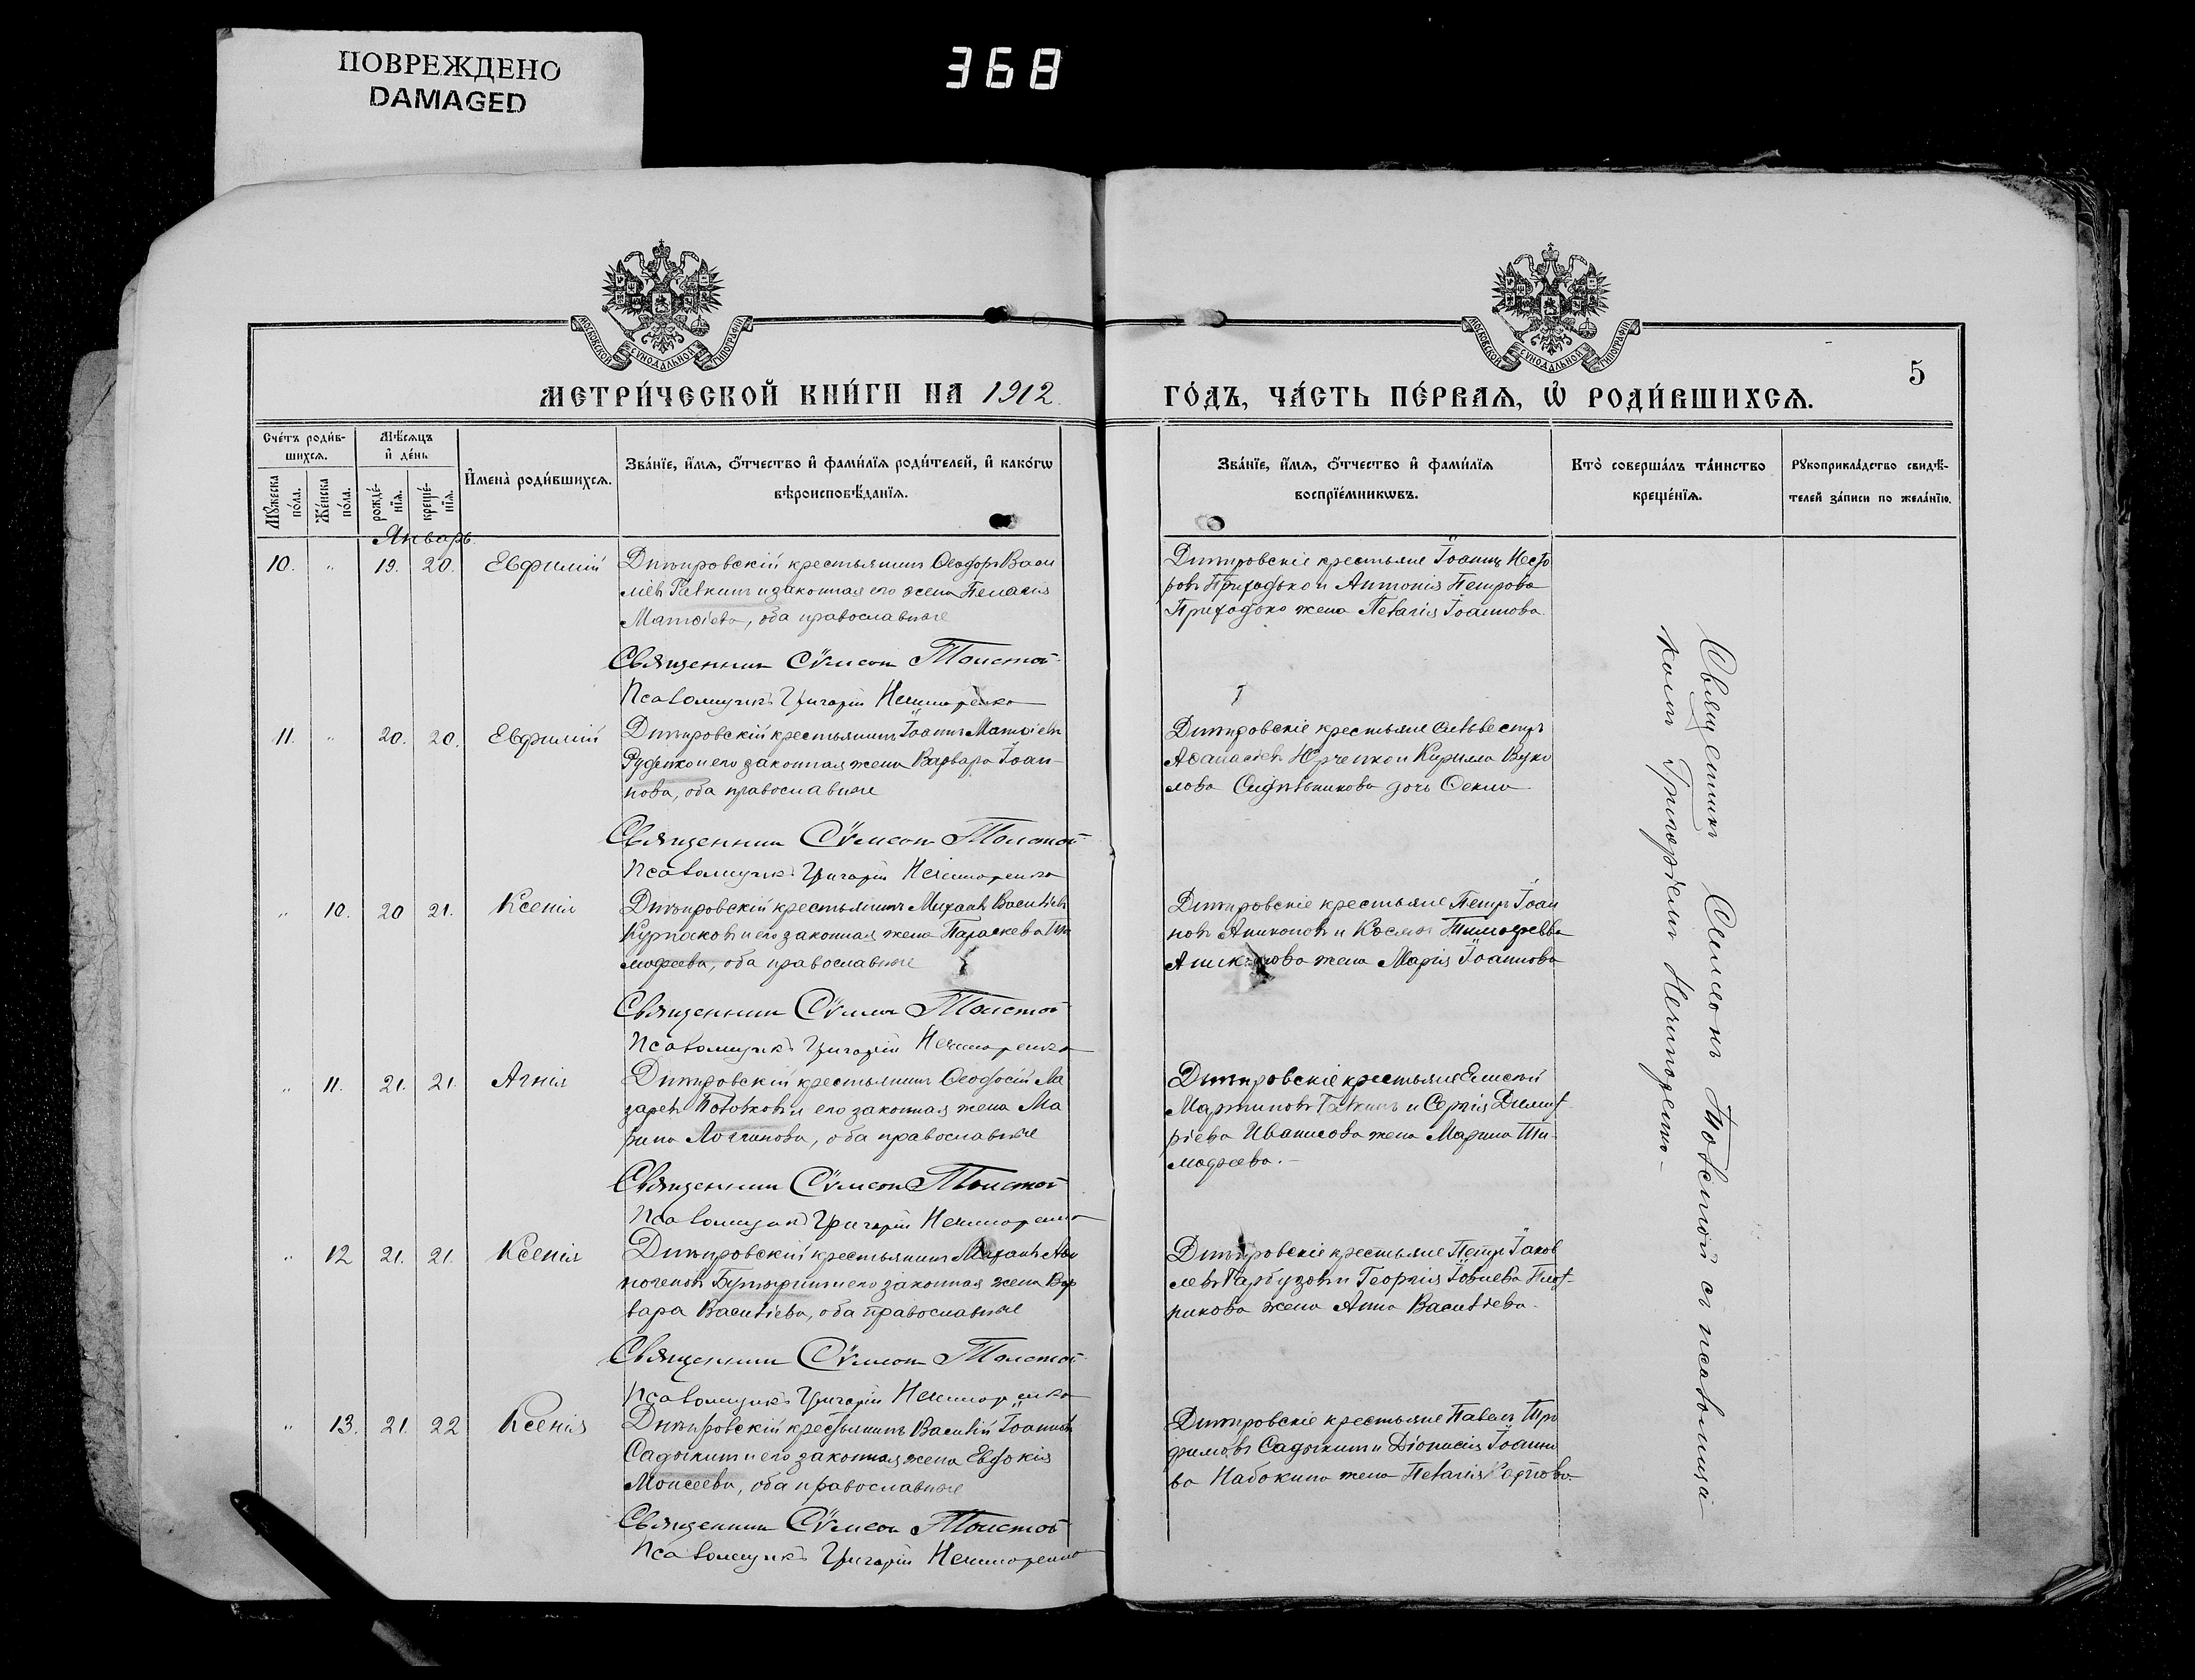 ПОВРЕЖДЕНО
DAMAGED
368
МОСКОВСКОЙ СУНОДАЛЬНОЙ ТИПОГРАФІИ
МОСКОВСКОЙ СУНОДАЛЬНОЙ ТИПОГРАФІИ
5
МЕТРИ́ЧЕСКОЙ КНИ́ГИ НА 1912
ГО́ДЪ, ЧА́СТЬ ПЕ́РВАѦ, Ѡ҆ РОДИ́ВШИХСѦ.
Сче́тъ роди́в-
шихсѧ.
Мѣ́сѧцъ
и҆ де́нь
Мꙋ́жеска
по́ла.
Же́нска
по́ла.
рожде́-
нїѧ.
креще́-
нїѧ.
И҆мена̀ роди́вшихсѧ.
Зва́нїе, и҆́мѧ, ѻ҆́тчество и҆ фами́лїѧ роди́телей, и҆ како́гѡ
вѣроисповѣ́данїѧ.
Зва́нїе, и҆́мѧ, ѻ҆́тчество и҆ фами́лїѧ
воспрїе́мникѡвъ.
Кто̀ соверша́лъ та́инство
креще́нїѧ.
Рꙋкоприкла́дство свидѣ́-
телей за́писи по жела́нїю.
Январь
10. " 19. 20. Евфимій
Дмитровскій крестьянинъ Ѳеодоръ Васи
льевъ Галкинъ и законная его жена Пелагія
Матѳіева, оба православные
Священникъ Сѵмеонъ Толстой
Псаломщикъ Григорій Нечипоренко
Дмитровскіе крестьяне Іоаннъ Несто
ровъ Приходько и Антонія Петрова
Приходько жена Пелагія Іоаннова
11. " 20. 20. Евфимій
Дмитровскій крестьянинъ Іоаннъ Матѳіевъ
Руденко и его законная жена Варвара Іоан-
нова, оба православные
Священникъ Сѵмеонъ Толстой
Псаломщикъ Григорій Нечипоренко
Дмитровскіе крестьяне Сильвестръ
Аѳанасіевъ Юрченко и Кирилла Вуко
лова Сидѣльникова дочь Ѳекла
" 10. 20 21. Ксенія
Дмитровскій крестьянинъ Михаилъ Васильевъ
и его законная жена Параскева Ти
моѳеева, оба православные
Священникъ Сѵмеонъ Толстой
Псаломщикъ Григорій Нечипоренко
Дмитровскіе крестьяне Петръ Іоан
новъ и Космы Тимоѳеева
жена Марія Іоаннова
" 11. 21. 21. Агнія
Дмитровскій крестьянинъ Ѳеодосій Ла
заревъ и его законная жена Ма
рина Логгинова, оба православные
Священникъ Сѵмеонъ Толстой
Псаломщикъ Григорій Нечипоренко
Дмитровскіе крестьяне Елисей
Мартиновъ Галкинъ и Сергія Димит
ріева Иванисова жена Марина Ти-
моѳеева.
" 12 21. 21. Ксенія
Дмитровскій крестьянинъ Михаилъ
и его законная жена Вар
вара Васильева, оба православные
Священникъ Сѵмеонъ Толстой
Псаломщикъ Григорій Нечипоренко
Дмитровскіе крестьяне Петръ Іаков
левъ Гарбузовъ и Георгія
жена Анна Васильева.
" 13. 21. 22 Ксенія
Дмитровскій крестьянинъ Василій Іоанновъ
Садыкинъ и его законная жена Евдокія
Моисеева, оба православные
Священникъ Сѵмеонъ Толстой
Псаломщикъ Григорій Нечипоренко
Дмитровскіе крестьяне Павелъ Тро
фимовъ Садыкинъ и Діонисія Іоанно
ва Набокина жена Пелагія Карпова
Священникъ Симеонъ Толстой съ псаломщи-
комъ Григоріемъ Нечипоренко